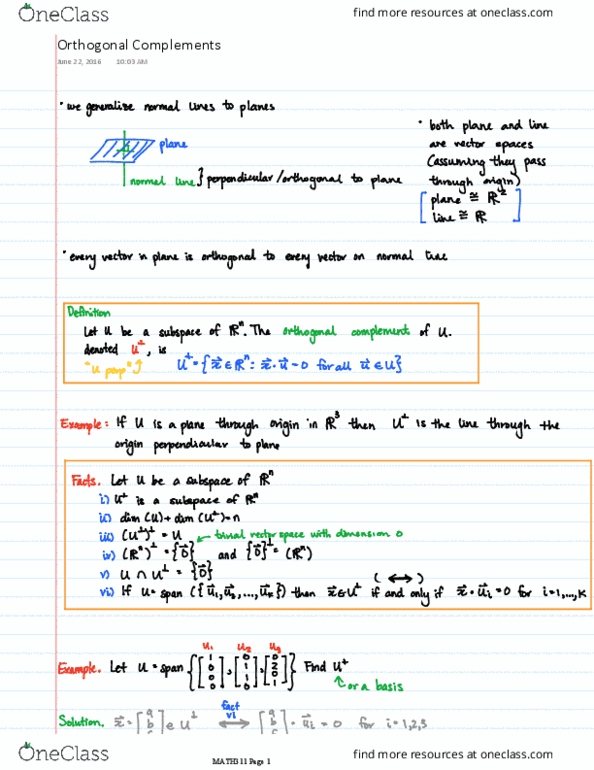 OneClass find more resources at oneclass.com
Orthogonal Complements
June 22, 2016 10:03 AM
• we generalize normal lines to planes
plane
normal line } perpendicular/orthogonal to plane
• both plane and line
are vector spaces
(assuming they pass
through origin)
[plane ≅ ℝ²
line ≅ ℝ]
• every vector in plane is orthogonal to every vector on normal line
Definition
Let U be a subspace of ℝⁿ. The orthogonal complement of U.
denoted U⊥, is
"U perp" U⊥ = {x⃗ ∈ ℝⁿ : x⃗ · u⃗ = 0 for all u⃗ ∈ U}
Example: If U is a plane through origin in ℝ³ then U⊥ is the line through the
origin perpendicular to plane
Facts. Let U be a subspace of ℝⁿ
i) U⊥ is a subspace of ℝⁿ
ii) dim (U) + dim (U⊥) = n
iii) (U⊥)⊥ = U trivial vector space with dimension 0
iv) (ℝⁿ)⊥ = {0⃗} and {0⃗}⊥ = (ℝⁿ)
v) U ∩ U⊥ = {0⃗}
(↔)
vi) If U = span ({u⃗₁, u⃗₂, ..., u⃗ₖ}) then x⃗ ∈ U⊥ if and only if x⃗ · u⃗ᵢ = 0 for i = 1, ..., k
u₁ u₂ u₃
Example. Let U = span {[1 0 0 0], [0 1 1 0], [0 2 0 1]} Find U⊥
or a basis
Solution. x⃗ = [a b c ∈ U⊥ ↔ fact vi [a b c · u⃗ᵢ = 0 for i = 1,2,3
OneClass find more resources at oneclass.com
MATH311 Page 1